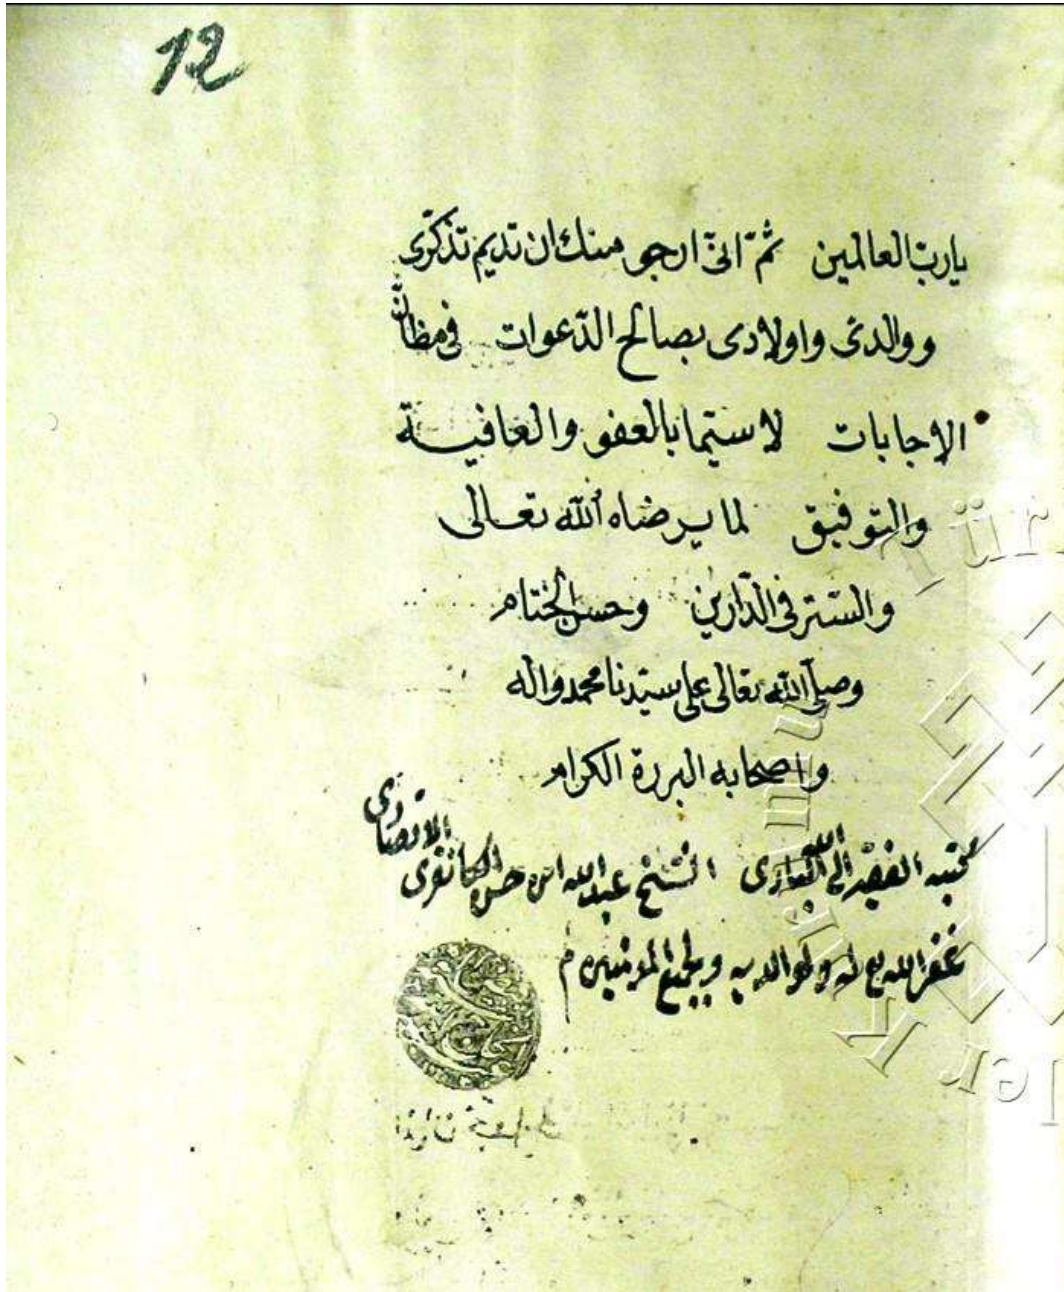 12
يا ربّ العالمين ثمّ انّى ارجو منك ان تديم تذكّرى
ووالدىّ واولادى بصالح الدّعوات فى مظانّ
الاجابات لا سيّما بالعفو والعافيـــة
والتوفيق لما يرضاه الله تعـالى
والستر فى الدّارين وحسن الختام
وصلى الله تعالى على سيّدنا محمد واله
واصحابه البررة الكرام
كتبه الفقير الى الله البارى الشيخ عبد الله ابن حسن الكانغرى الانصارى
غفر الله له ولوالديه ولجميع المؤمنين م